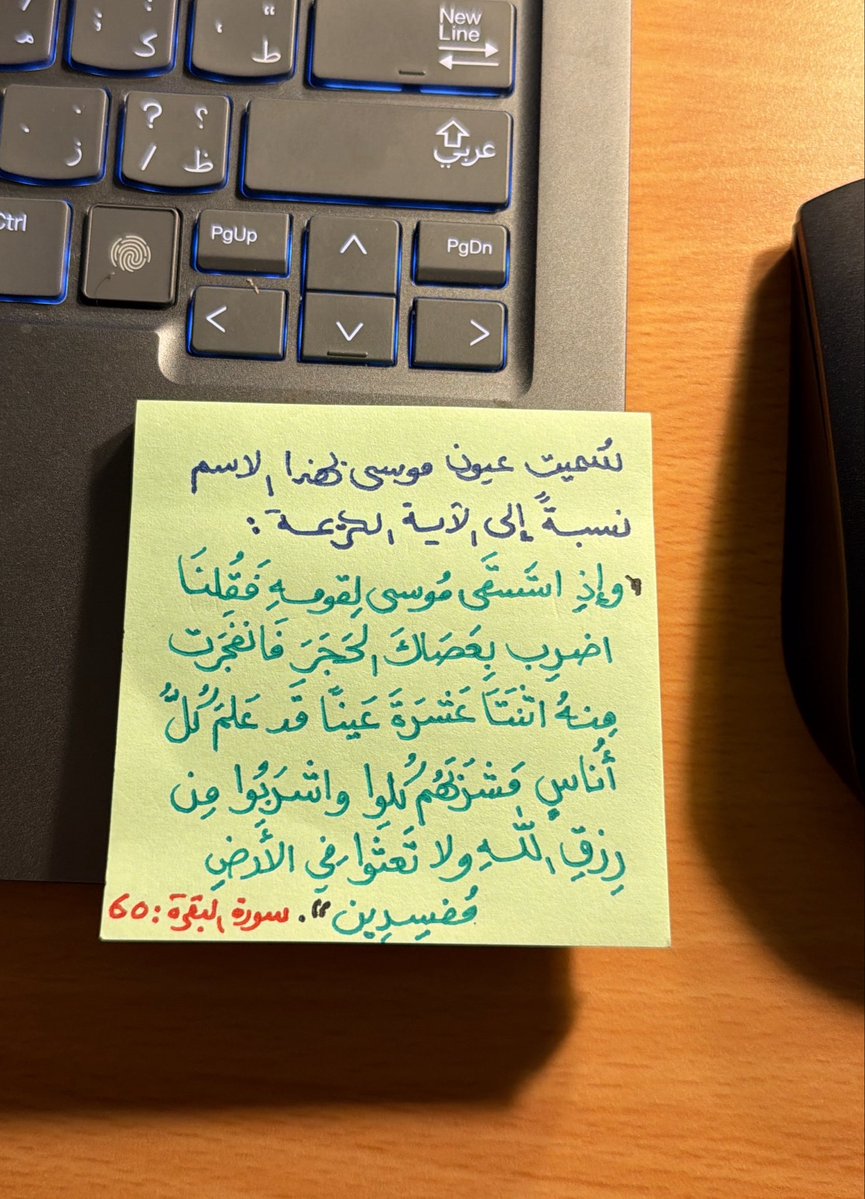 م ك ط New Line
ز ? ؟ / ظ عربي
Ctrl PgUp ^ PgDn
< v >
سُميت عيون موسى بهذا الاسم
نسبةً إلى الآية الكريمة:
"وإذِ استَسقَى مُوسى لِقومِهِ فَقُلنَا
اضرِب بِعَصَاكَ الحَجَرَ فَانفَجَرَت
مِنهُ اثْنَتَا عَشْرَةَ عَينًا قَد عَلِمَ كُلُّ
أُناسٍ مَشرَبَهُم كُلوا واشرَبُوا مِن
رِزقِ اللّهِ ولا تَعثَوا فِي الأَرضِ
مُفسِدِين". سورة البقرة: 60